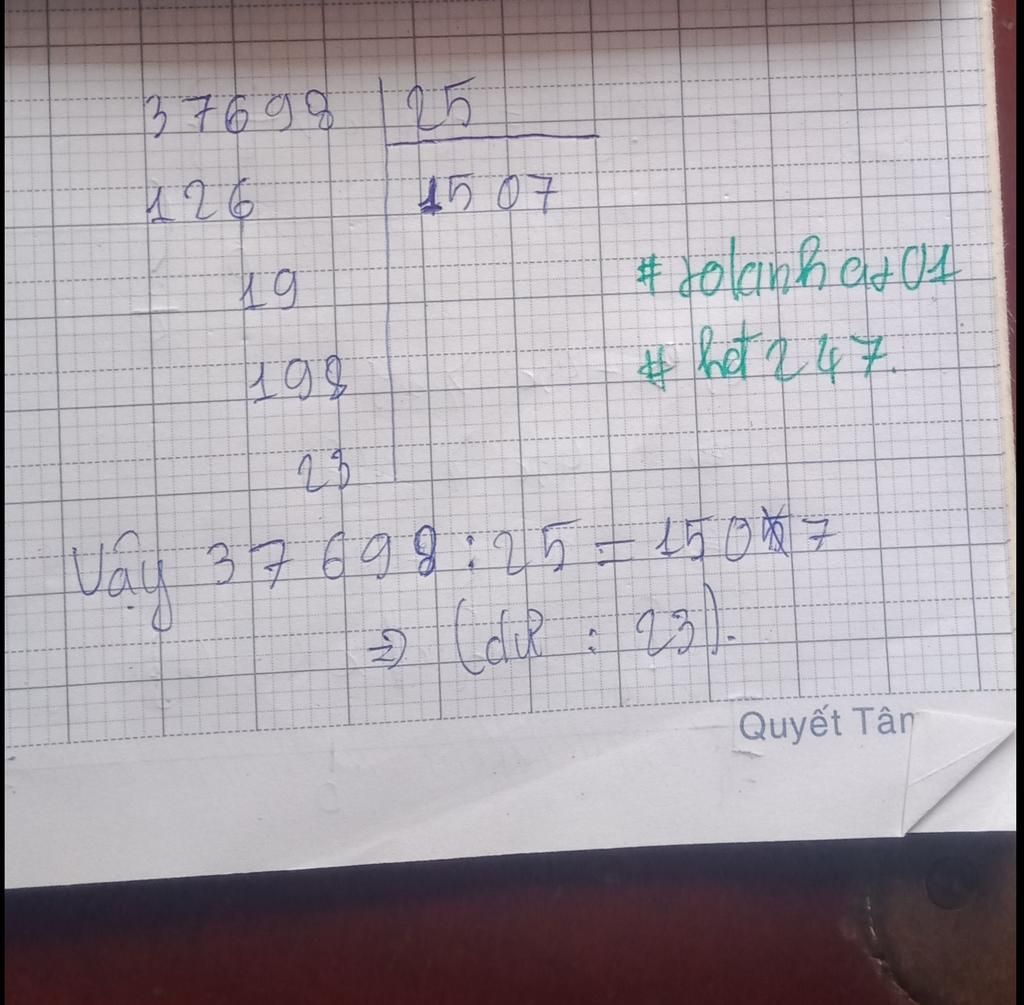 37698 25
126 1507
19
# tolanhat01
198
# hđ247.
23
Vậy 37698 : 25 = 1507
=> (dư : 23).
Quyết Tân